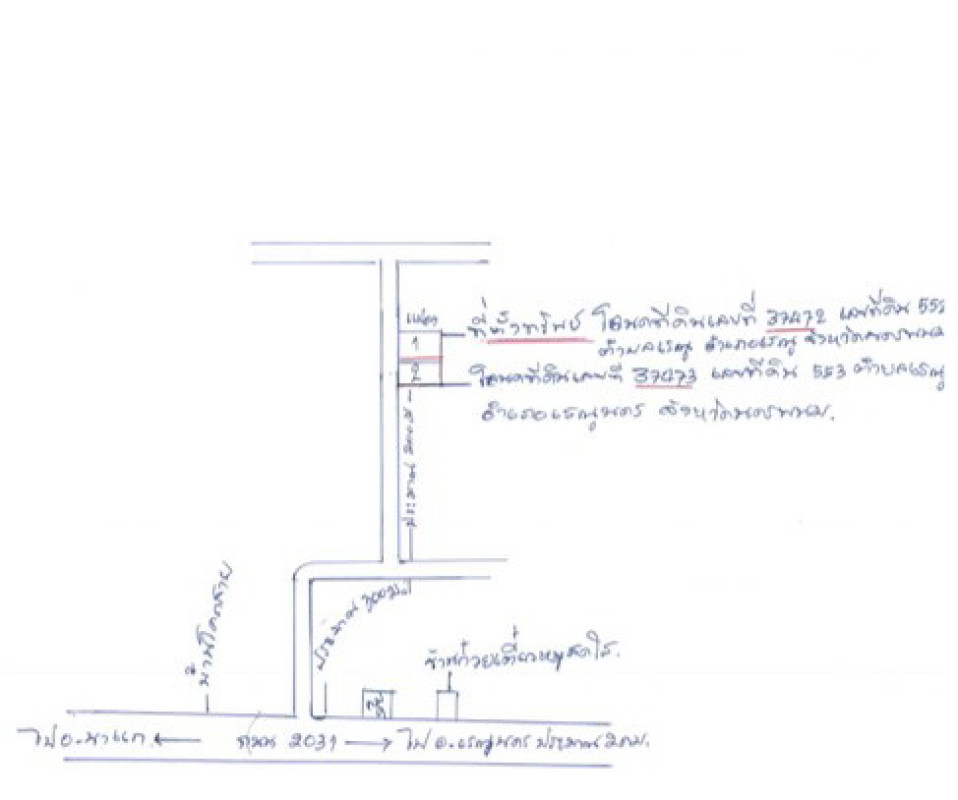 แปลง
1
2
ที่ตั้งทรัพย์ โฉนดที่ดินเลขที่ 37472 เลขที่ดิน 552
ตำบลเรณู อำเภอเรณู จังหวัดนครพนม
โฉนดที่ดินเลขที่ 37473 เลขที่ดิน 553 ตำบลเรณู
อำเภอเรณูนคร จังหวัดนครพนม.
ประมาณ
บ้านโคกสาย
ประมาณ
ร้านก๋วยเตี๋ยวหมูสดใส.
ไป อ.นาแก ถนน 2031 ไป อ.เรณูนคร ประมาณ 2 กม.